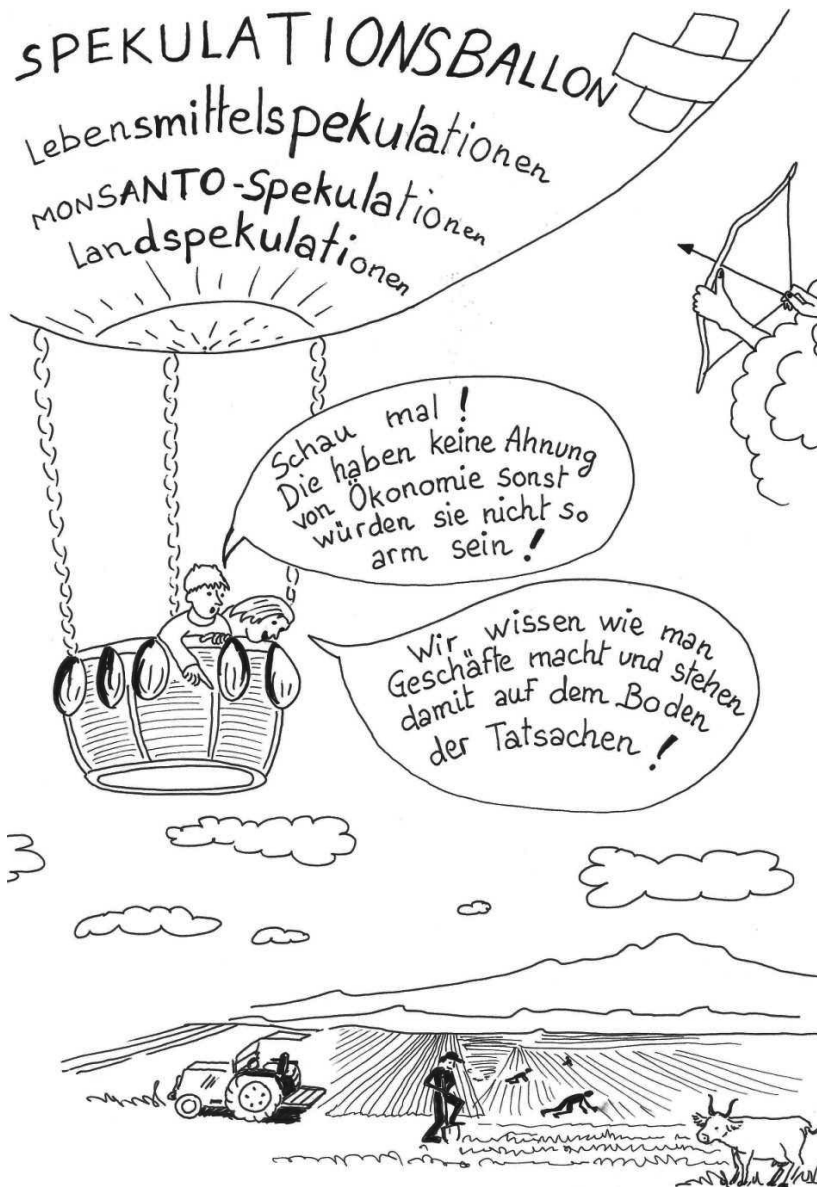 SPEKULATIONSBALLON
Lebensmittelspekulationen
MONSANTO-Spekulationen
Landspekulationen
Schau mal!
Die haben keine Ahnung
von Ökonomie sonst
würden sie nicht so
arm sein!
Wir wissen wie man
Geschäfte macht und stehen
damit auf dem Boden
der Tatsachen!